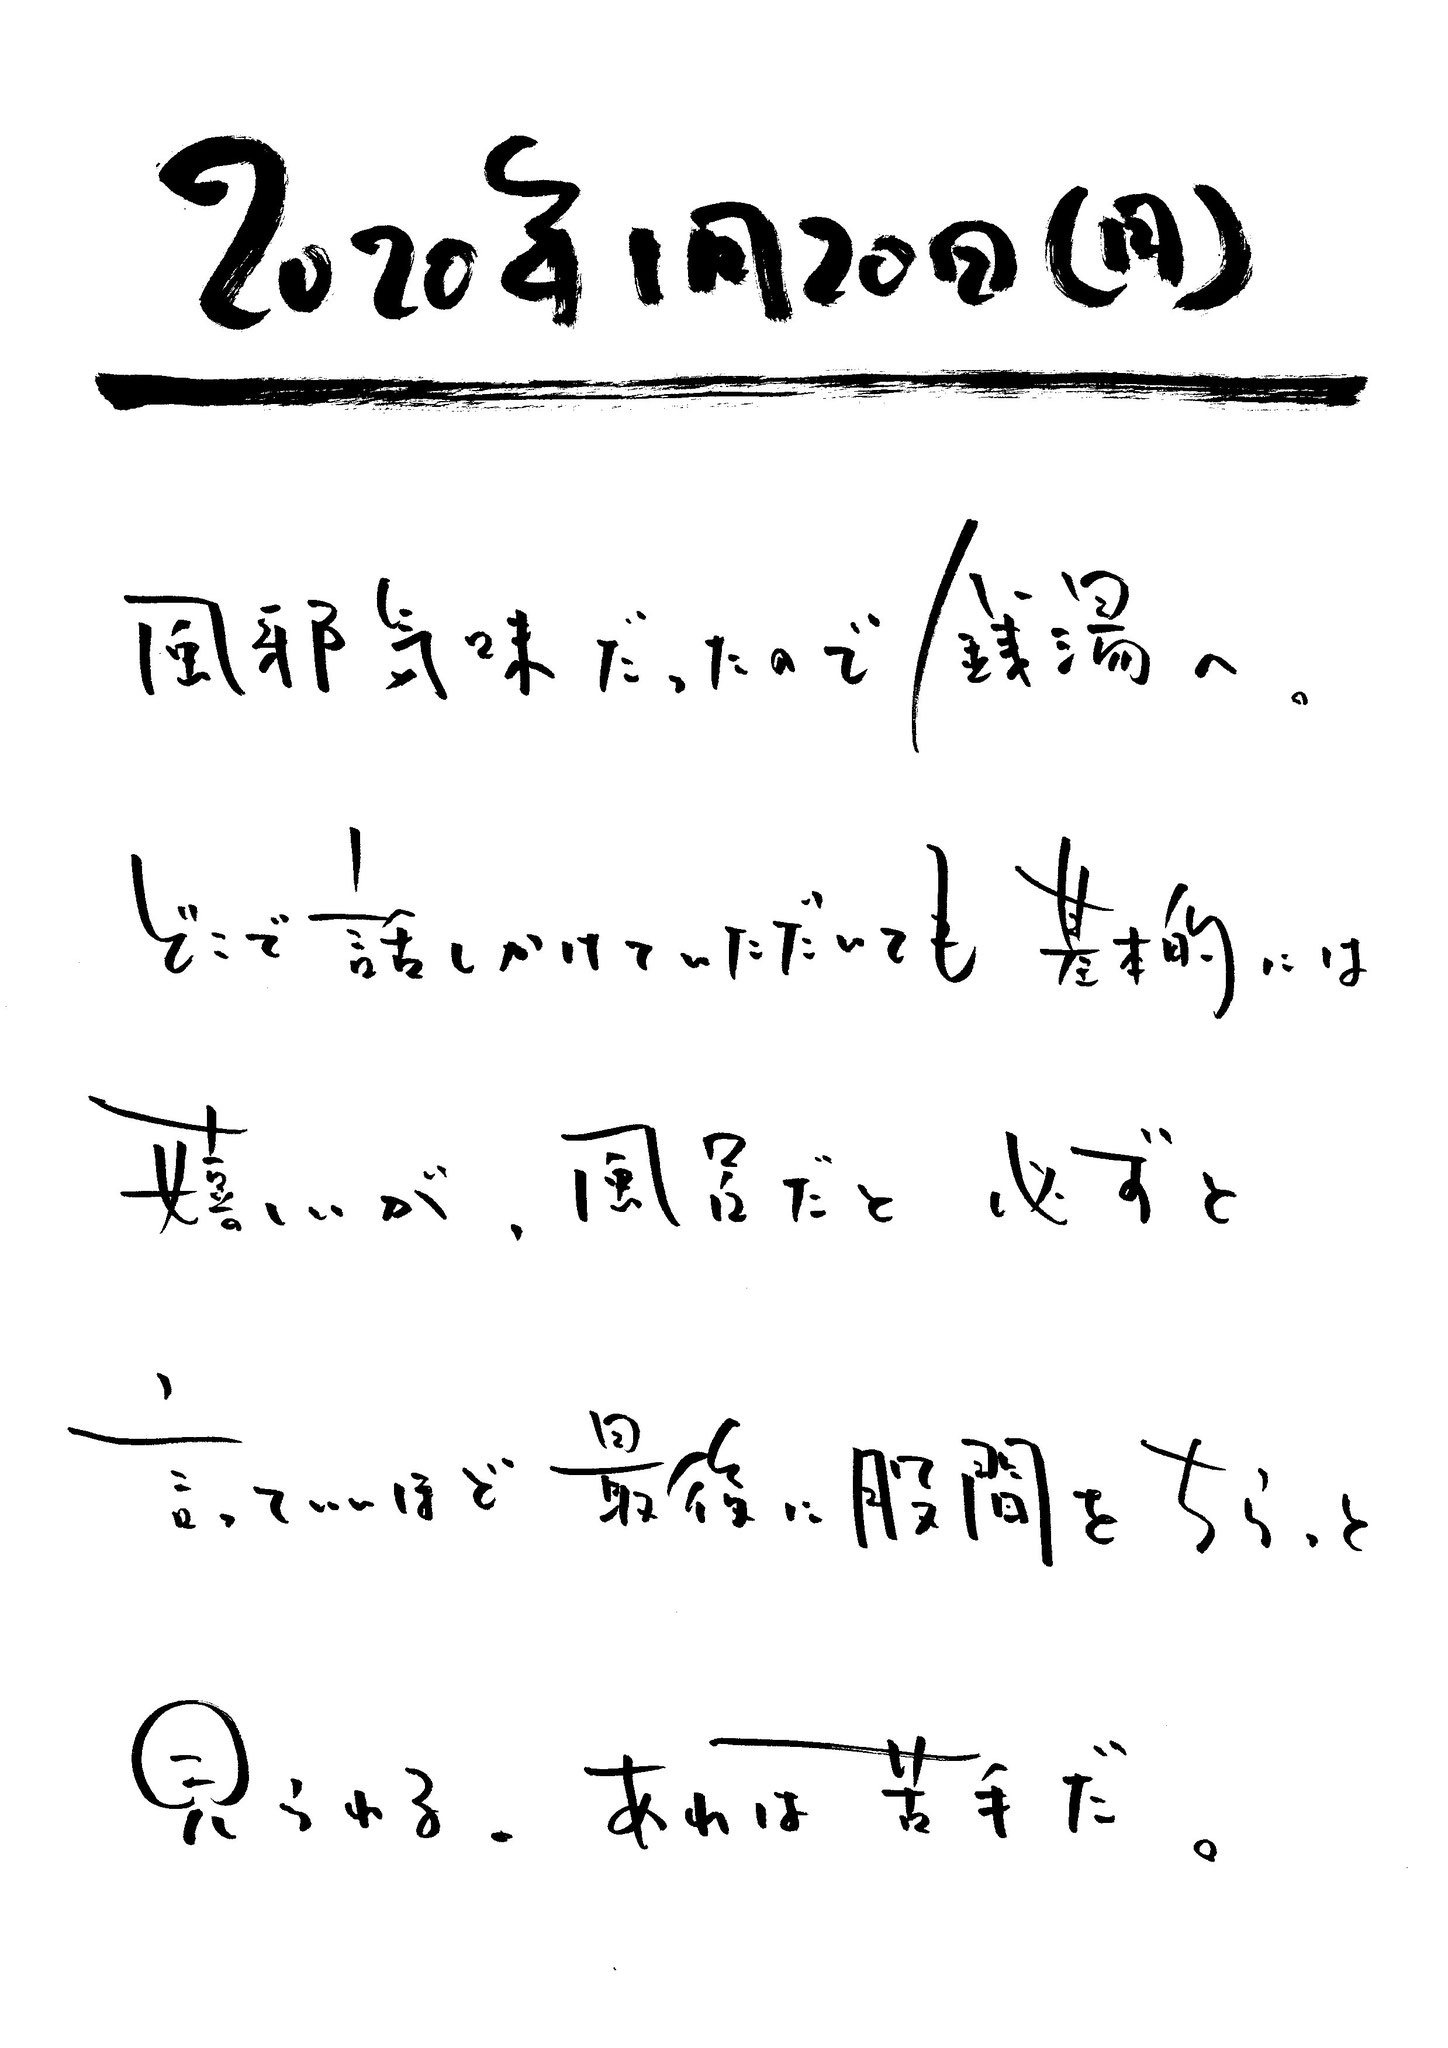 2020年1月20日(月)
風邪気味だったので銭湯へ。
どこで話しかけていただいても基本的には
嬉しいが、風呂だと必ずと
言っていいほど最後に股間をちらっと
見られる。あれは苦手だ。